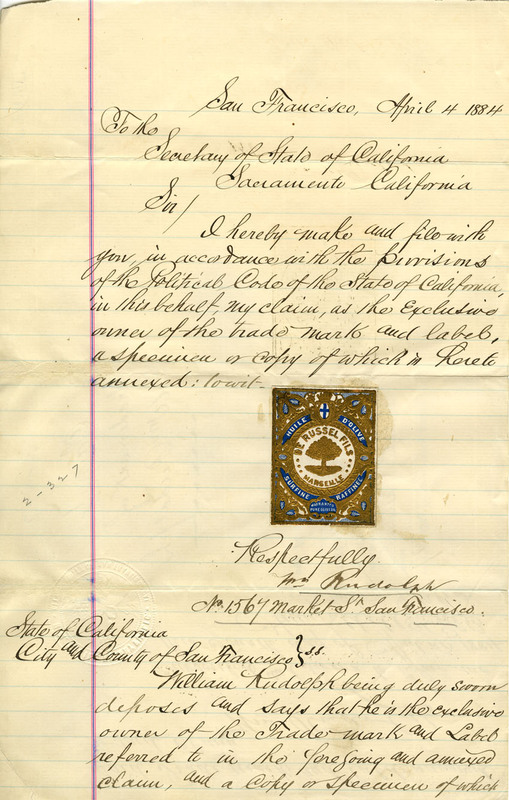 San Francisco, April 4 1884
To the
Secretary of State of California
Sacramento California
Sir/
I hereby make and file with
you, in accordance with the provisions
of the Political Code of the State of California,
in this behalf, my claim, as the Exclusive
owner of the trade mark and label,
a specimen or copy of which is hereto
annexed: to wit-
HUILE D'OLIVE
DE RUSSEL FILS
MARSEILLE
SURFINE RAFFINEE
WARRANTED
PURE OLIVE OIL
2-327
Respectfully
Wm Rudolph
No. 1567 Market St. San Francisco.
State of California
City and County of San Francisco } s.s.
William Rudolph being duly sworn
deposes and says that he is the exclusive
owner of the Trade mark and Label
referred to in the foregoing and annexed
claim, and a copy or specimen of which